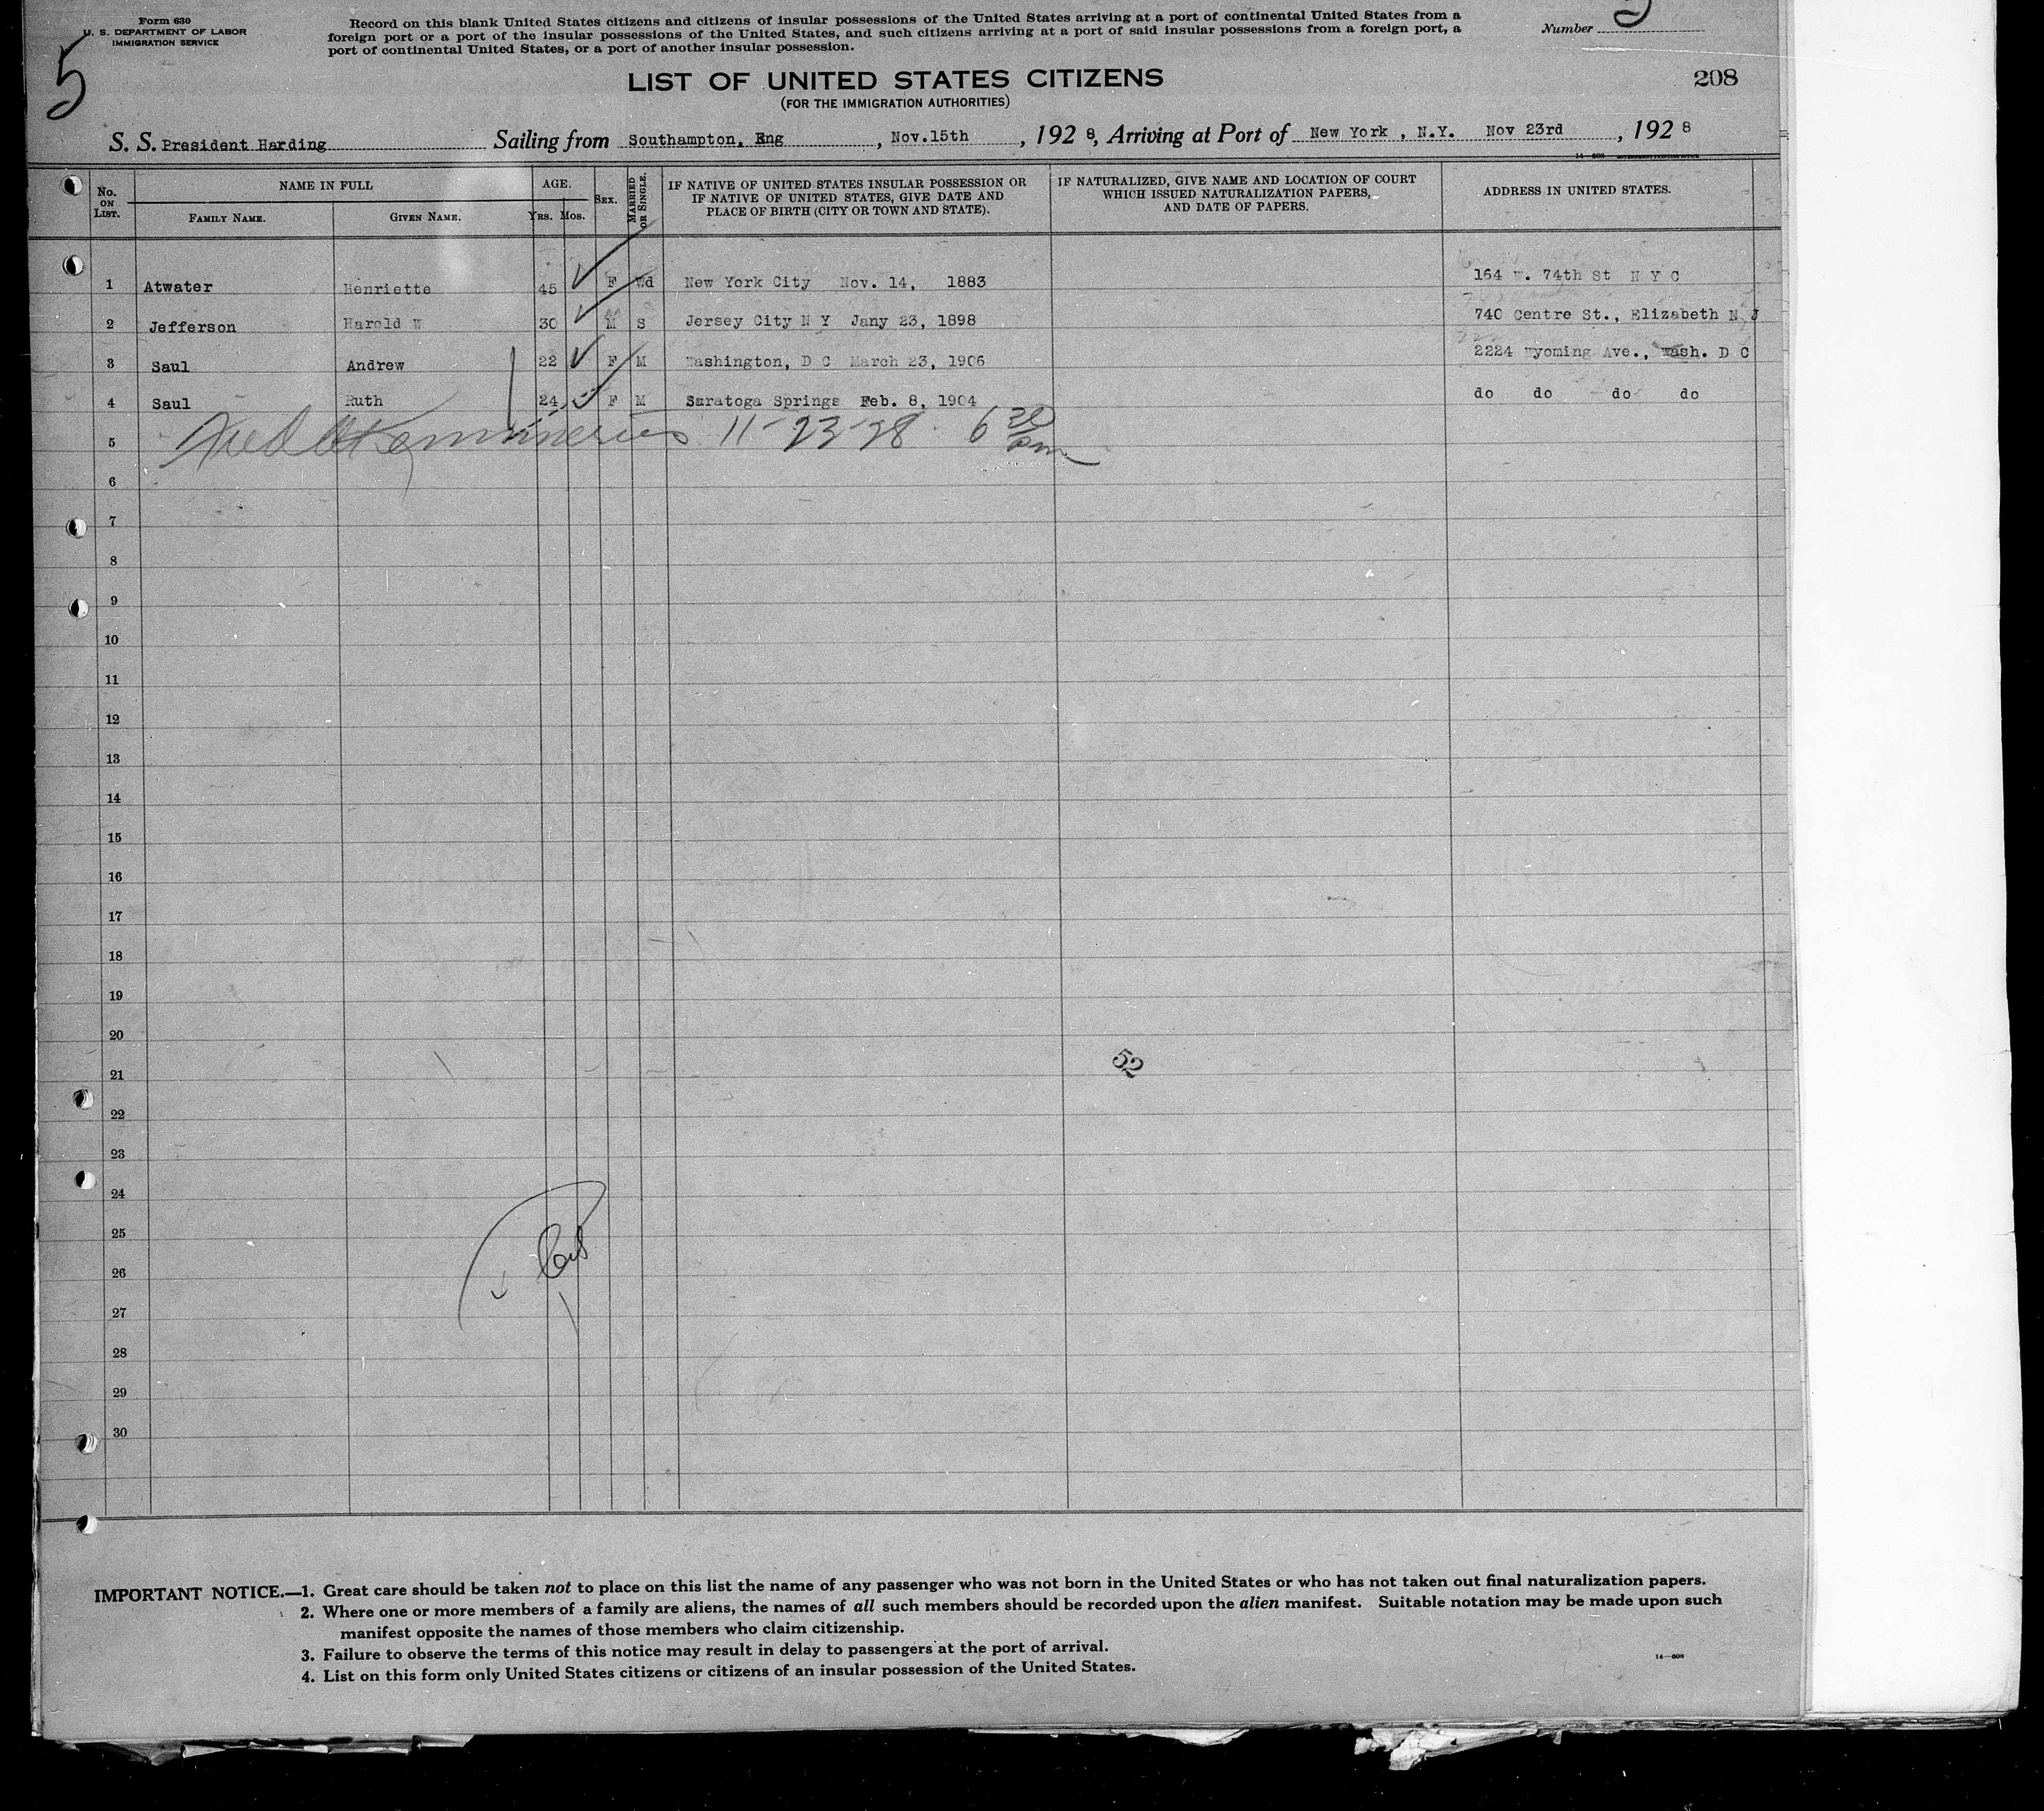 Form 630
U. S. DEPARTMENT OF LABOR
IMMIGRATION SERVICE
5
Record on this blank United States citizens and citizens of insular possessions of the United States arriving at a port of continental United States from a
foreign port or a port of the insular possessions of the United States, and such citizens arriving at a port of said insular possessions from a foreign port, a
port of continental United States, or a port of another insular possession.
Number
LIST OF UNITED STATES CITIZENS
(FOR THE IMMIGRATION AUTHORITIES)
208
S. S. President Harding Sailing from Southampton, Eng , Nov.15th , 192 8, Arriving at Port of New York , N.Y. Nov 23rd , 192 8
No. ON LIST.
NAME IN FULL
FAMILY NAME. GIVEN NAME.
AGE.
YRS. MOS.
SEX.
MARRIED OR SINGLE.
IF NATIVE OF UNITED STATES INSULAR POSSESSION OR
IF NATIVE OF UNITED STATES, GIVE DATE AND
PLACE OF BIRTH (CITY OR TOWN AND STATE).
IF NATURALIZED, GIVE NAME AND LOCATION OF COURT
WHICH ISSUED NATURALIZATION PAPERS,
AND DATE OF PAPERS.
ADDRESS IN UNITED STATES.
1 Atwater Henriette 45 F Wd New York City Nov. 14, 1883 164 W. 74th St N Y C
2 Jefferson Harold W 30 M S Jersey City N Y Jany 23, 1898 740 Centre St., Elizabeth N J
3 Saul Andrew 22 F M Washington, D C March 23, 1906 2224 Wyoming Ave., Wash. D C
4 Saul Ruth 24 F M Saratoga Springs Feb. 8, 1904 do do do do
5 11-23-28 6 30 pm
6
7
8
9
10
11
12
13
14
15
16
17
18
19
20
21
52
22
23
24
25
26
27
28
29
30
IMPORTANT NOTICE.—1. Great care should be taken not to place on this list the name of any passenger who was not born in the United States or who has not taken out final naturalization papers.
2. Where one or more members of a family are aliens, the names of all such members should be recorded upon the alien manifest. Suitable notation may be made upon such
manifest opposite the names of those members who claim citizenship.
3. Failure to observe the terms of this notice may result in delay to passengers at the port of arrival.
4. List on this form only United States citizens or citizens of an insular possession of the United States.
14—608